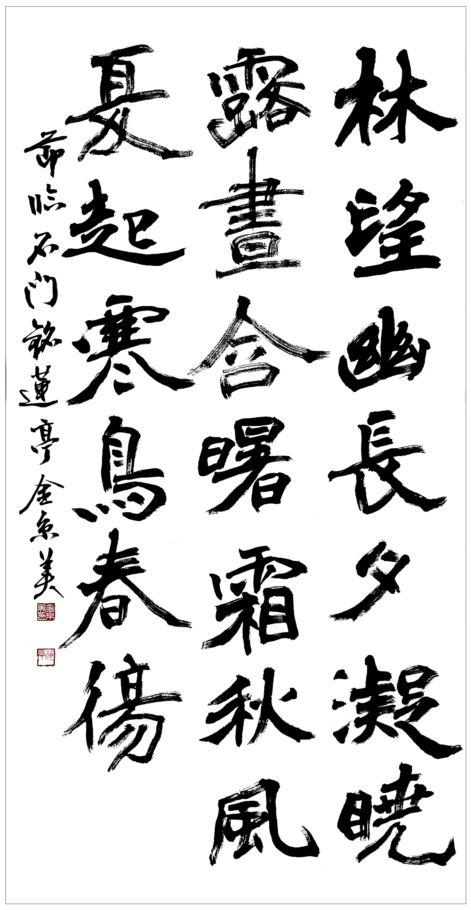 林望幽長夕凝曉
露晝含曙霜秋風
夏起寒鳥春傷
節臨石門銘蓮亭金京美